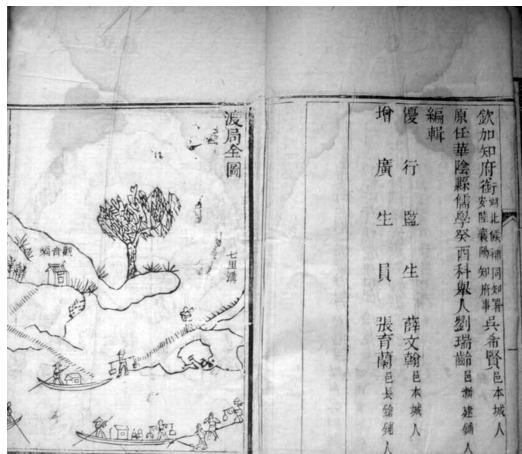 欽加知府銜湖北候補同知署安陸襄陽知府事吳希賢邑本城人
原任華陰縣儒學癸酉科舉人劉瑞齡邑新建鋪人
編輯
優行監生薛文翰邑本城人
增廣生員張育蘭邑長鋪人
渡局全圖
七里溝
觀音